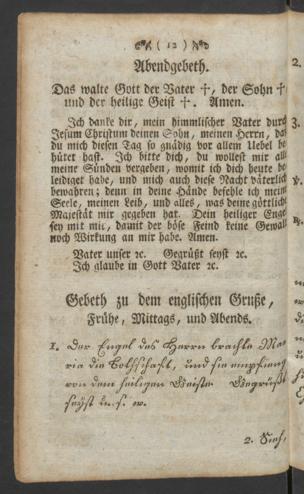 ( 12 )
Abendgebeth.
Das walte Gott der Vater †, der Sohn †
und der heilige Geist †. Amen.
Ich danke dir, mein himmlischer Vater durch
Jesum Christum deinen Sohn, meinen Herrn, daß
du mich diesen Tag so gnädig vor allem Uebel be
hütet hast. Ich bitte dich, du wollest mir all
meine Sünden vergeben, womit ich dich heute be
leidiget habe, und mich auch diese Nacht väterlich
bewahren; denn in deine Hände befehle ich meine
Seele, meinen Leib, und alles, was deine göttliche
Majestät mir gegeben hat. Dein heiliger Engel
sey mit mir, damit der böse Feind keine Gewalt
noch Wirkung an mir habe. Amen.
Vater unser ꝛc. Gegrüßt seyst ꝛc.
Ich glaube in Gott Vater ꝛc.
Gebeth zu dem englischen Gruße,
Frühe, Mittags, und Abends.
1. Der Engel des Herrn brachte Ma
ria die Bothschaft, und sie empfieng
von dem heiligen Geiste. Gegrüßt
seyst u. s. w.
2. Sieh,